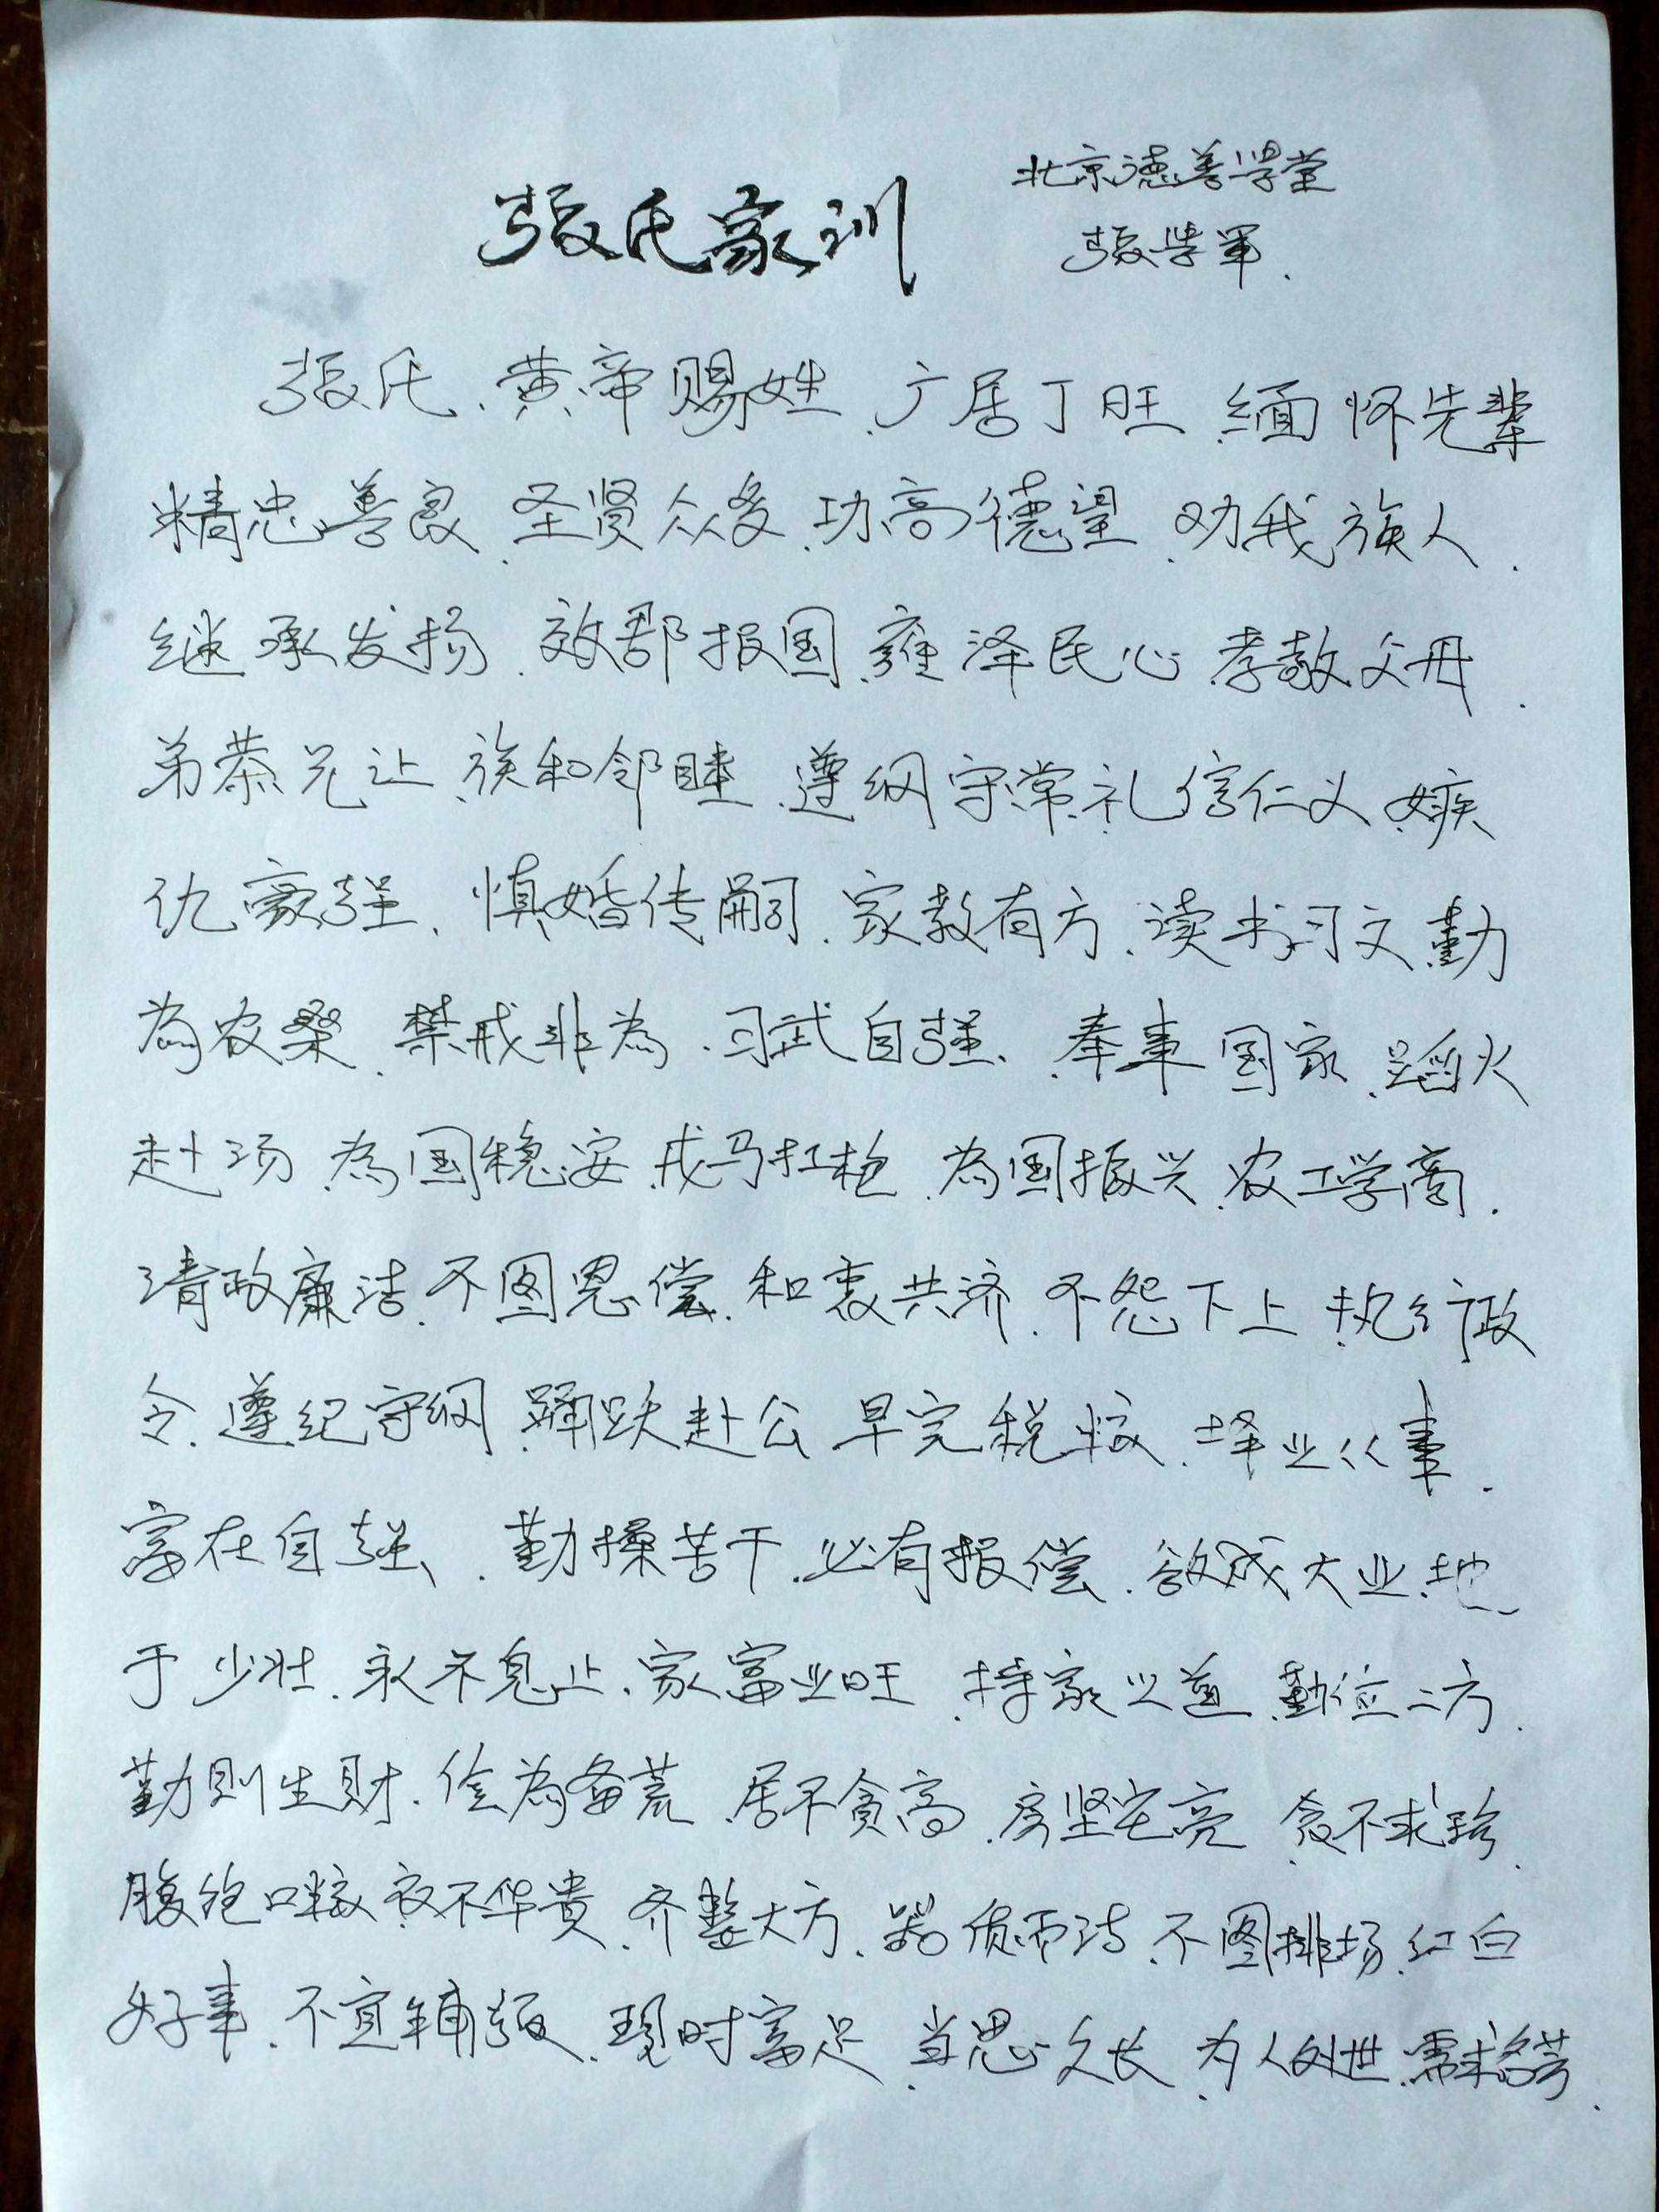 北京德善学堂
张氏家训
张学军.
张氏、黄帝赐姓、广居丁旺、缅怀先辈
精忠善良、圣贤众多、功高德望、劝我族人.
继承发扬、效郡报国、雍泽民心、孝敬父母.
弟恭兄让、族和邻睦、遵纲守常、礼信仁义、嫉
仇豪强、慎婚传嗣、家教有方、读书习文、勤
為农桑、禁戒非為、习武自强、奉事国家、蹈火
赴汤、為国稳安、戎马扛枪、為国振兴、农工学商.
清政廉洁、不图恩偿、和衷共济、不怨下上、执行政
令、遵纪守纲、踊跃赴公、早完税粮、择业从事.
富在自强、勤操苦干、必有报偿、欲成大业、地
于少壮、永不息止、家富业旺、持家之道、勤俭二方.
勤则生财、俭為备荒、居不贪高、房坚宅亮、食不求珍.
腹饱口粮、衣不华贵、齐整大方、器质而洁、不图排场、红白
好事、不宜铺张、现时富足、当思久长、为人处世、需求名芳.